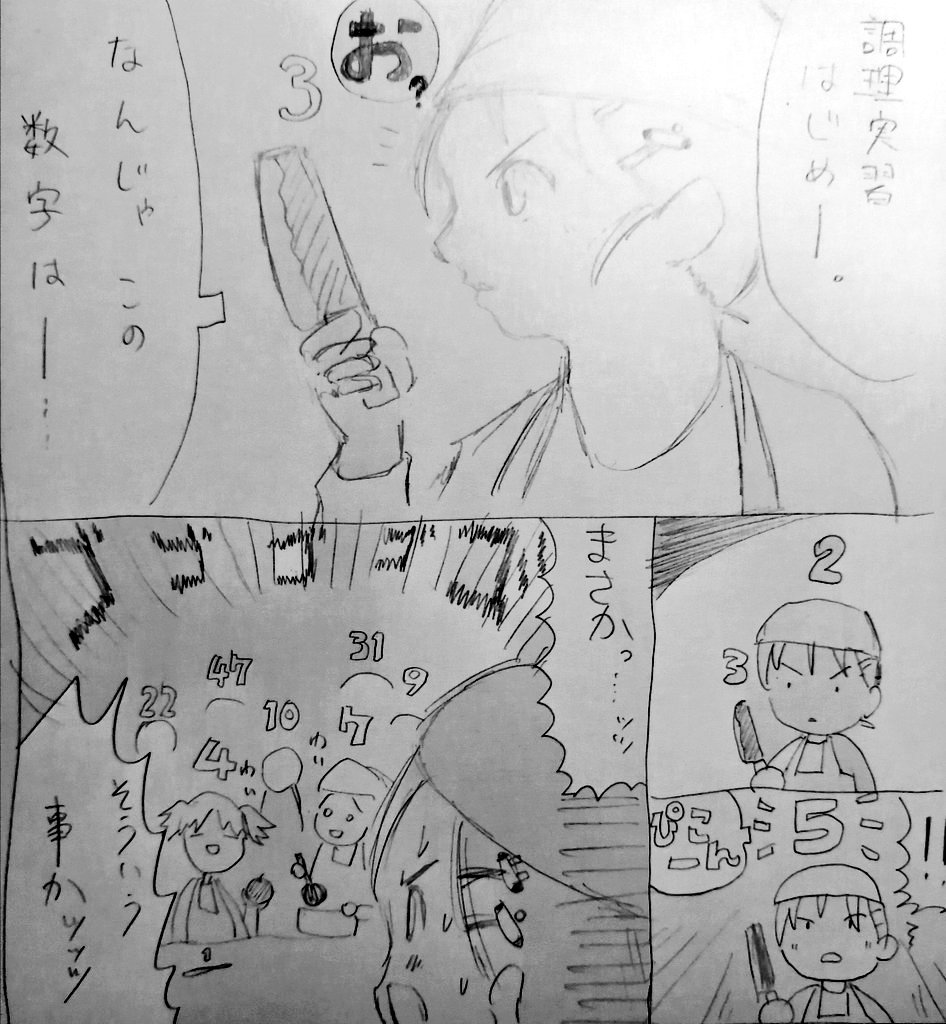 調理実習
はじめー。
お?
3
なんじゃ この
数字はー…
2
3
ぴこーん
5
!!
まさかっ……ッ
22
47
10
31
9
4
7
わい
わい
1
そういう
事かッッッ